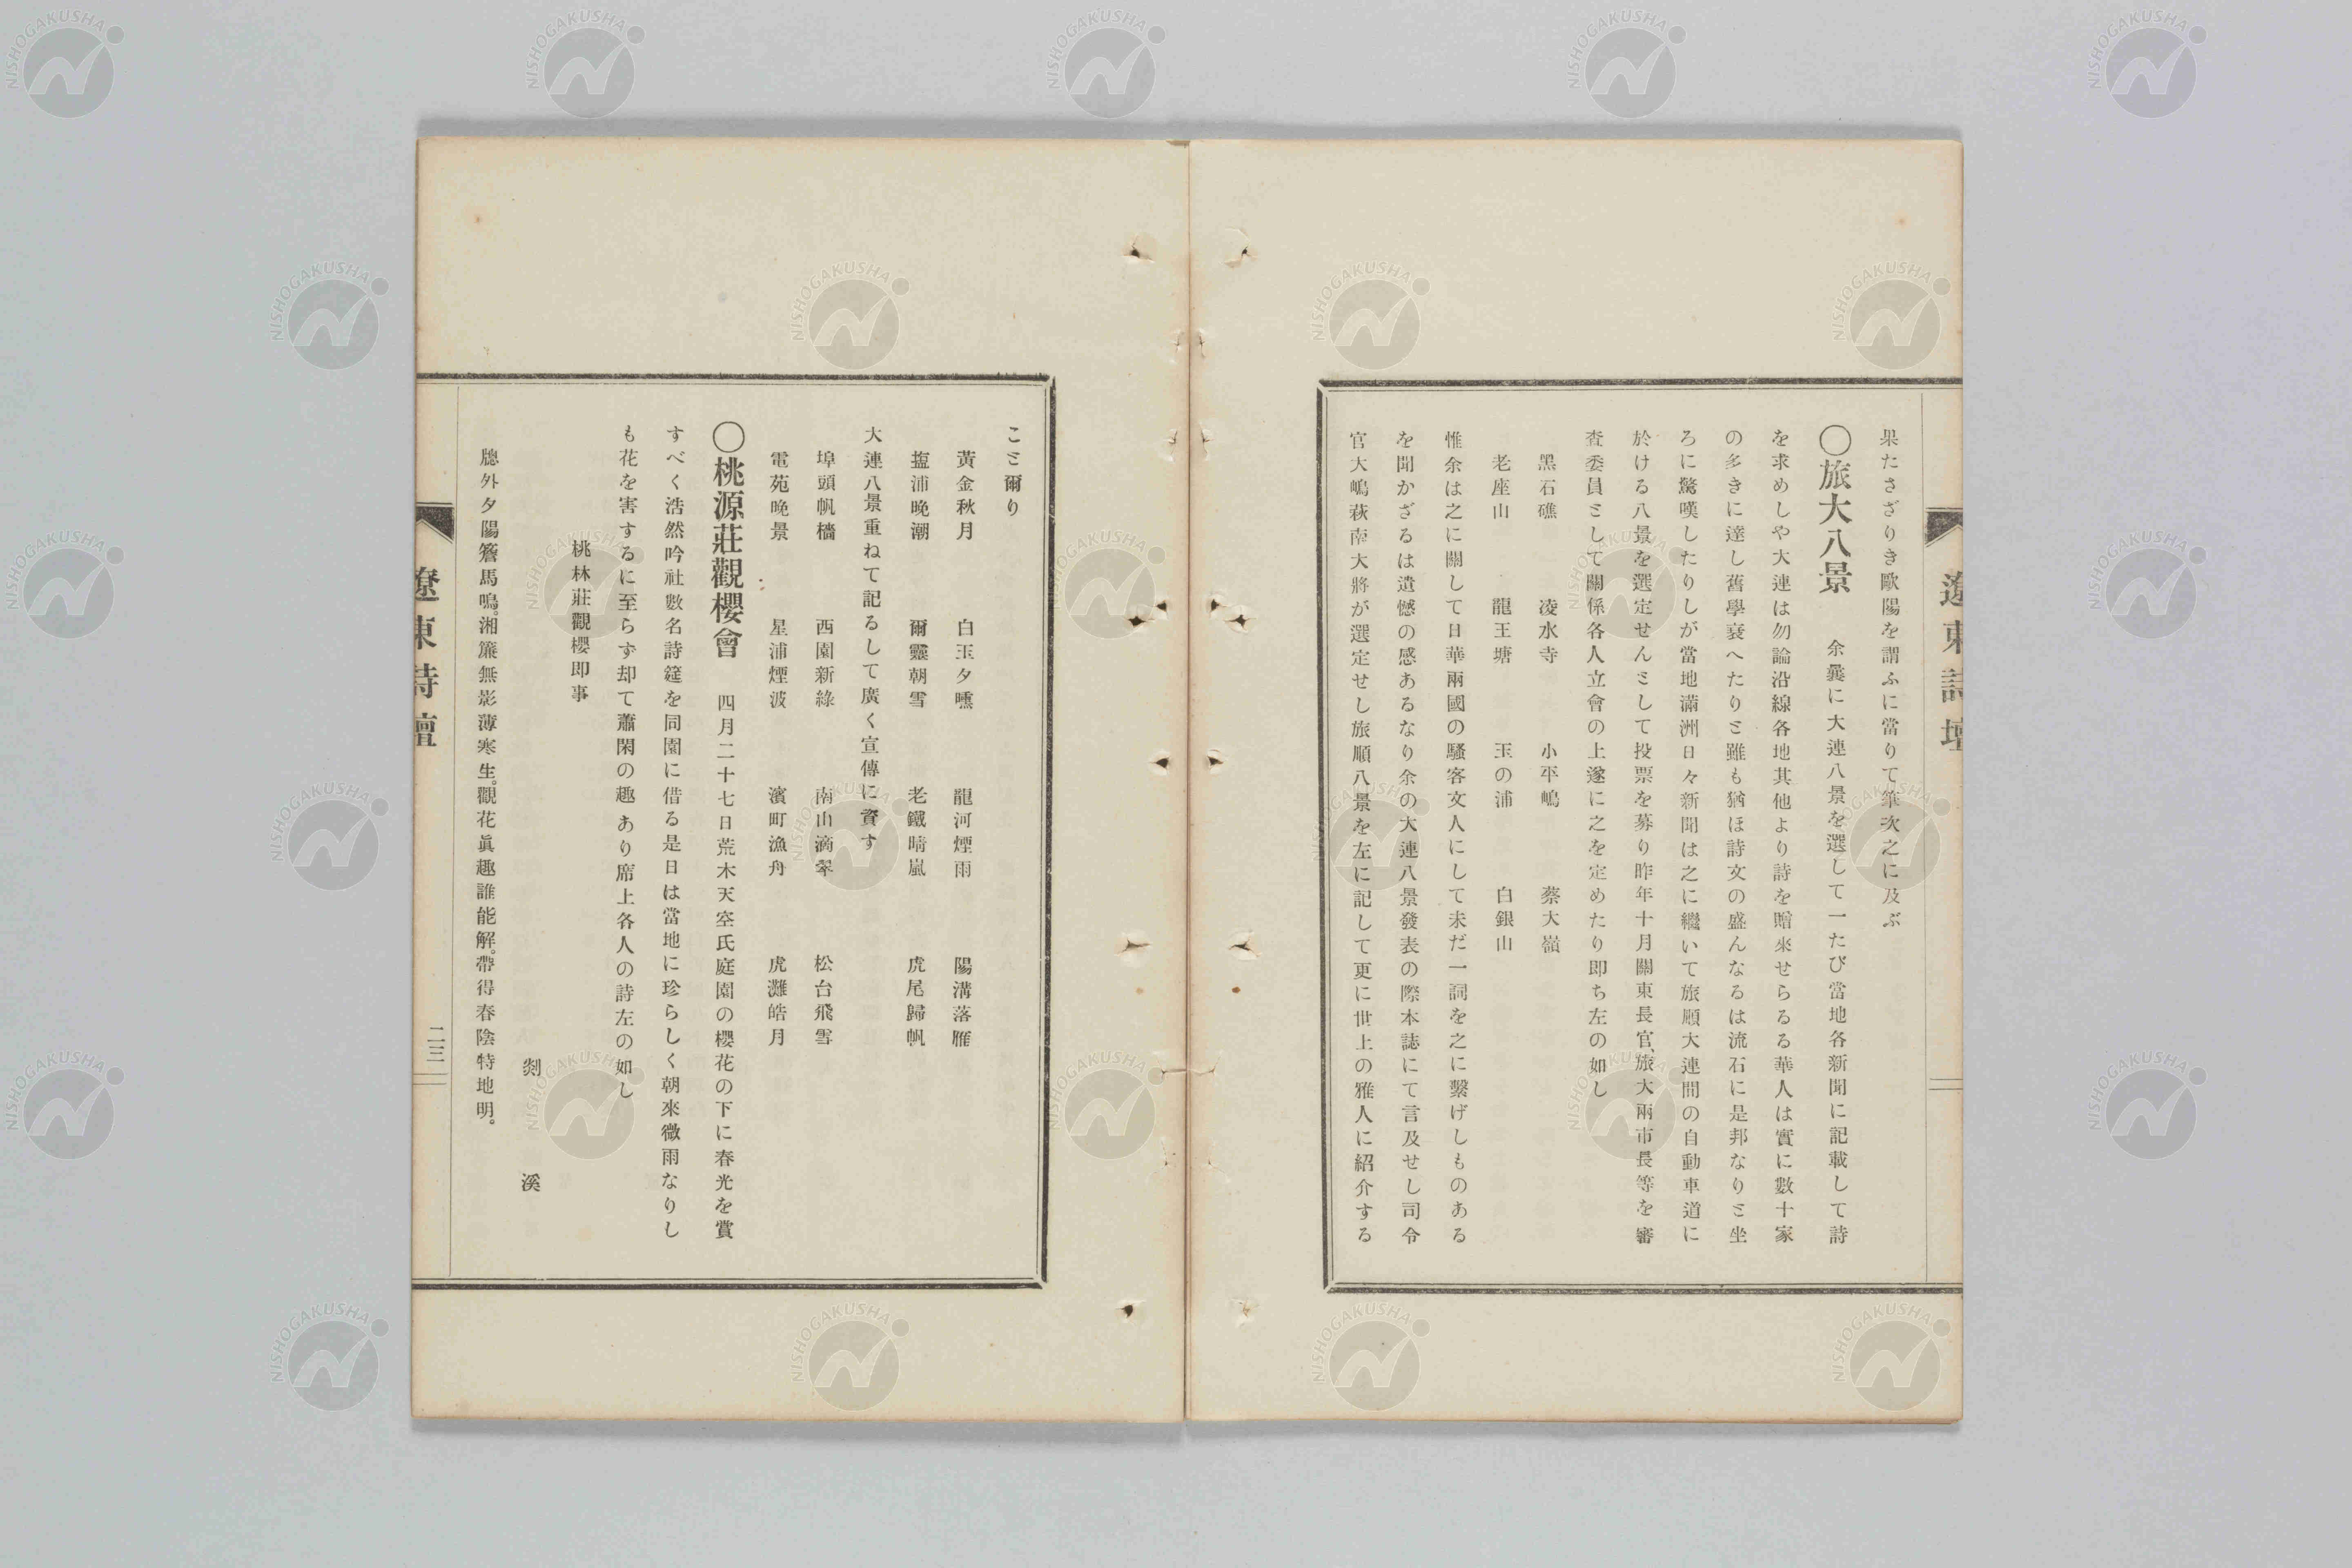 遼東詩壇
果たさざりき歐陽を謂ふに當りて筆次之に及ぶ
〇旅大八景 余曩に大連八景を選して一たび當地各新聞に記載して詩
を求めしや大連は勿論沿線各地其他より詩を贈來せらるる華人は實に數十家
の多きに達し舊學衰へたりと雖も猶ほ詩文の盛んなるは流石に是邦なりと坐
ろに驚嘆したりしが當地滿洲日々新聞は之に繼いて旅順大連間の自動車道に
於ける八景を選定せんとして投票を募り昨年十月關東長官、旅大兩市長等を審
査委員として關係各人立會の上遂に之を定めたり即ち左の如し
黑石礁 凌水寺 小平嶋 蔡大嶺
老座山 龍王塘 玉の浦 白銀山
惟余は之に關して日華兩國の騷客文人にして未だ一詞を之に繫げしものある
を聞かざるは遺憾の感あるなり余の大連八景發表の際本誌にて言及せし司令
官大嶋萩南大將が選定せし旅順八景を左に記して更に世上の雅人に紹介する
こと爾り
黃金秋月 白玉夕曛 龍河煙雨 陽溝落雁
塩浦晚潮 爾靈朝雪 老鐵晴嵐 虎尾歸帆
大連八景重ねて記るして廣く宣傳に資す
埠頭帆檣 西園新綠 南山滴翠 松台飛雪
電苑晚景 星浦煙波 濱町漁舟 虎灘皓月
〇桃源莊觀櫻會 四月二十七日荒木天空氏庭園の櫻花の下に春光を賞
すべく浩然吟社數名詩筵を同園に借る是日は當地に珍らしく朝來微雨なりし
も花を害するに至らず却て蕭閑の趣あり席上各人の詩左の如し
桃林莊觀櫻即事
剡溪
牕外夕陽簷馬鳴。湘簾無影薄寒生。觀花眞趣誰能解。帶得春陰特地明。
遼東詩壇
二三